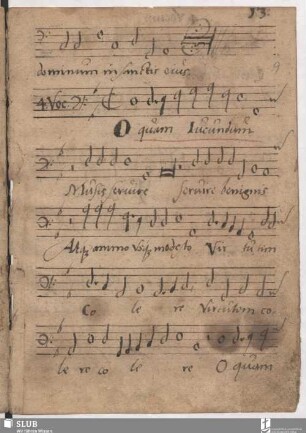 13.
dominum in sanctis eius.
4 Voc
O quam Iucundum
Musis servire servire benignis
animo modesto Vir tutem
Co le re Virtutem co
le re co le re O quam
SLUB
Wir führen Wissen.